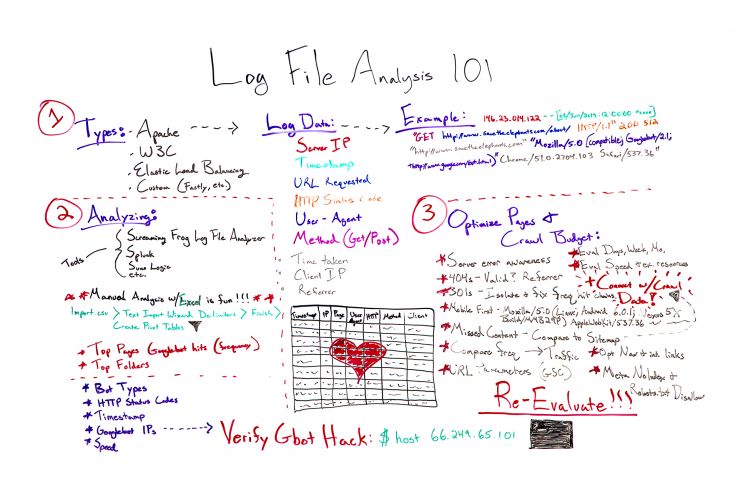 Log File Analysis 101
1
Types:
- Apache
- W3C
- Elastic Load Balancing
- Custom (Fastly, etc)
Log Data:
Server IP
Timestamp
URL Requested
HTTP Status Code
User-Agent
Method (Get/Post)
Time taken
Client IP
Referrer
Example:
146.23.014.122
"GET http://www.savetheelephants.com/about/ HTTP/1.1" 200 512
"http://www.savetheelephants.com" "Mozilla/5.0 (compatible; Googlebot/2.1;
+http://www.google.com/bot.html)" Chrome/51.0.2704.103 Safari/537.36"
2
Analyzing:
Tools
Screaming Frog Log File Analyzer
Splunk
Sumo Logic
etc.
* * Manual Analysis w/Excel is fun!!! * *
Import.csv > Text Import Wizard Delimiters > Finish >
Create Pivot Tables
* Top Pages Googlebot hits (frequency)
* Top Folders
* Bot Types
* HTTP Status Codes
* Timestamp
* Googlebot IPs
* Speed
Verify Gbot Hack: $ host 66.249.65.101
Timestamp IP Page User Agent HTTP Method Client
3
Optimize Pages &
Crawl Budget:
* Server error awareness
* 404s - Valid? Referrer
* 301s - Isolate & fix freq hit chains
* Mobile First - Mozilla/5.0 (Linux; Android 6.0.1; Nexus 5X
Build/MMB29P) AppleWebKit/537.36
* Missed Content - Compare to Sitemap
* Compare freq → Traffic
* URL Parameters (GSC)
* Eval Days, Week, Mo.
* Eval Speed & ext. resources
+ Connect w/Crawl
Data!
* Opt Nav & int links
* Meta NoIndex &
Robots.txt Disallow
Re-Evaluate!!!